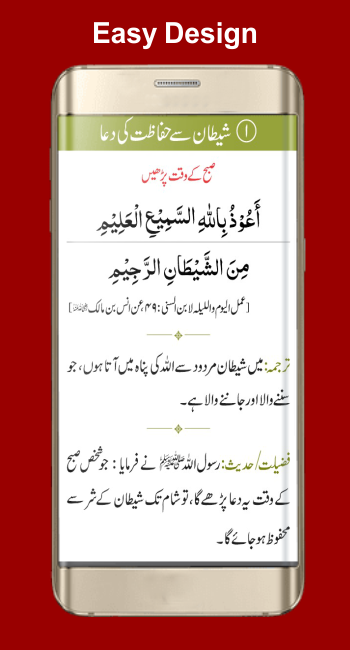 Easy Design
① شیطان سے حفاظت کی دعا
صبح کے وقت پڑھیں
أَعُوْذُ بِاللّٰهِ السَّمِيْعِ الْعَلِيْمِ
مِنَ الشَّيْطَانِ الرَّجِيْمِ
[عمل الیوم واللیلہ لابن السنی: ۴۹، عن انس بن مالک ؓ]
ترجمہ: میں شیطان مردود سے اللہ کی پناہ میں آتا ہوں، جو
سننے والا اور جاننے والا ہے۔
فضیلت/حدیث: رسول اللہ ﷺ نے فرمایا: جو شخص صبح
کے وقت یہ دعا پڑھے گا، تو شام تک شیطان کے شر سے
محفوظ ہو جائے گا۔